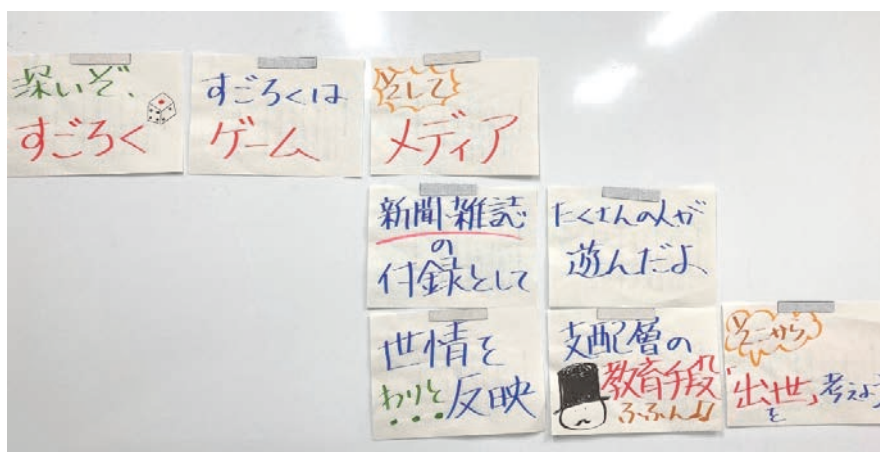 深いぞ、
すごろく
すごろくは
ゲーム
そして
メディア
新聞・雑誌
の
付録として
たくさんの人が
遊んだよ
世情を
わりと反映
支配層の
教育手段
ふふん♫
そこから
「出世」考えよう
を